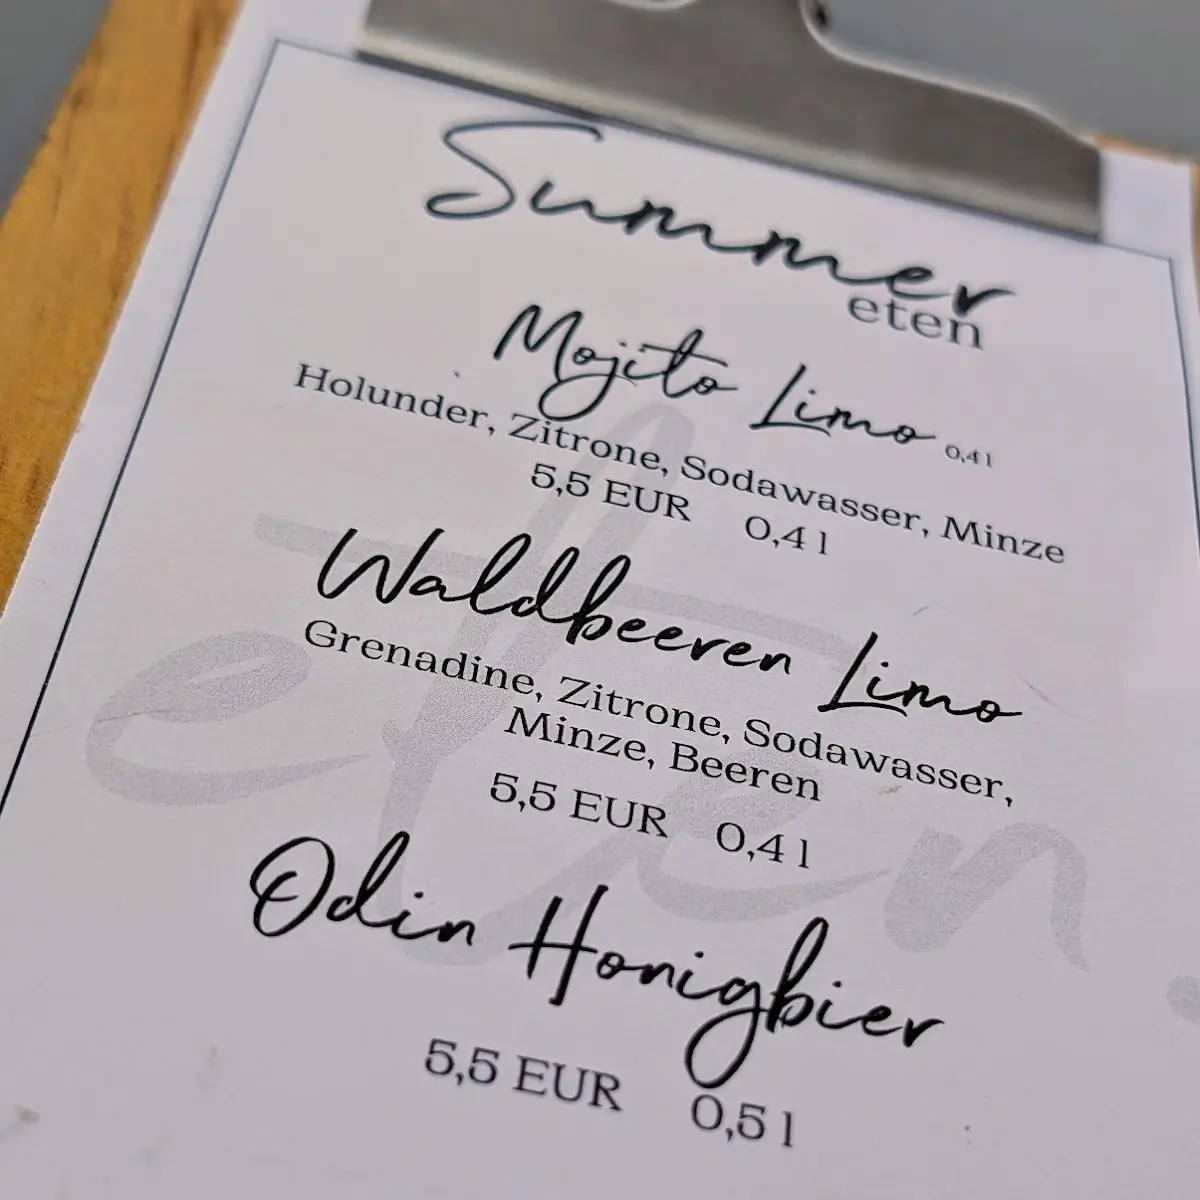 Summer
eten
Mojito Limo 0,4 l
Holunder, Zitrone, Sodawasser, Minze
5,5 EUR 0,4 l
Waldbeeren Limo
Grenadine, Zitrone, Sodawasser,
Minze, Beeren
5,5 EUR 0,4 l
Odin Honigbier
5,5 EUR 0,5 l
eten.